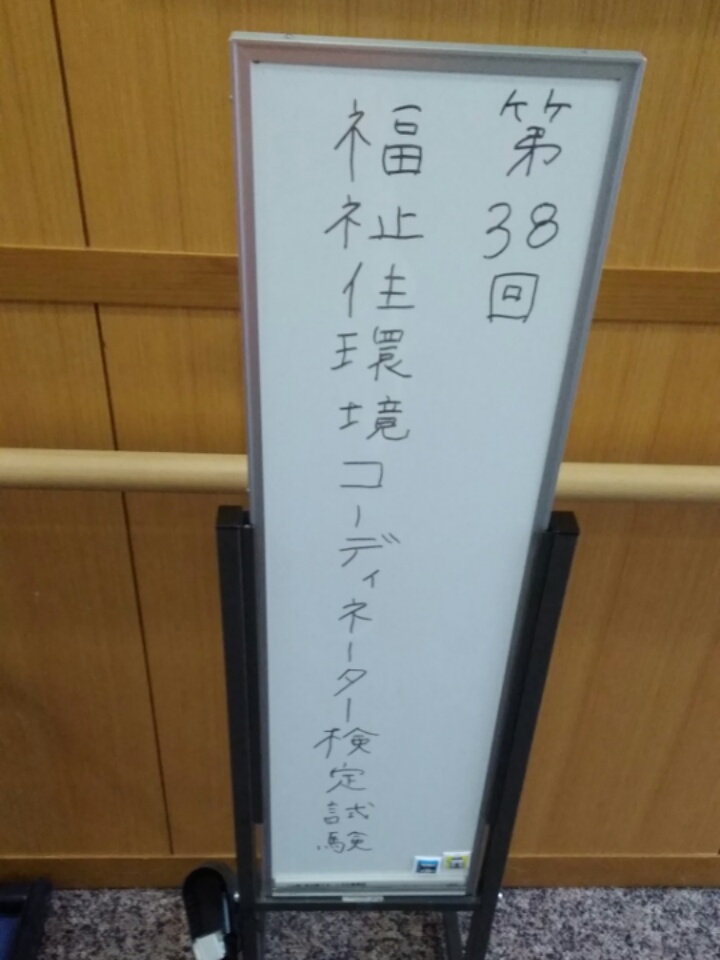 第38回
福祉住環境コーディネーター検定試験